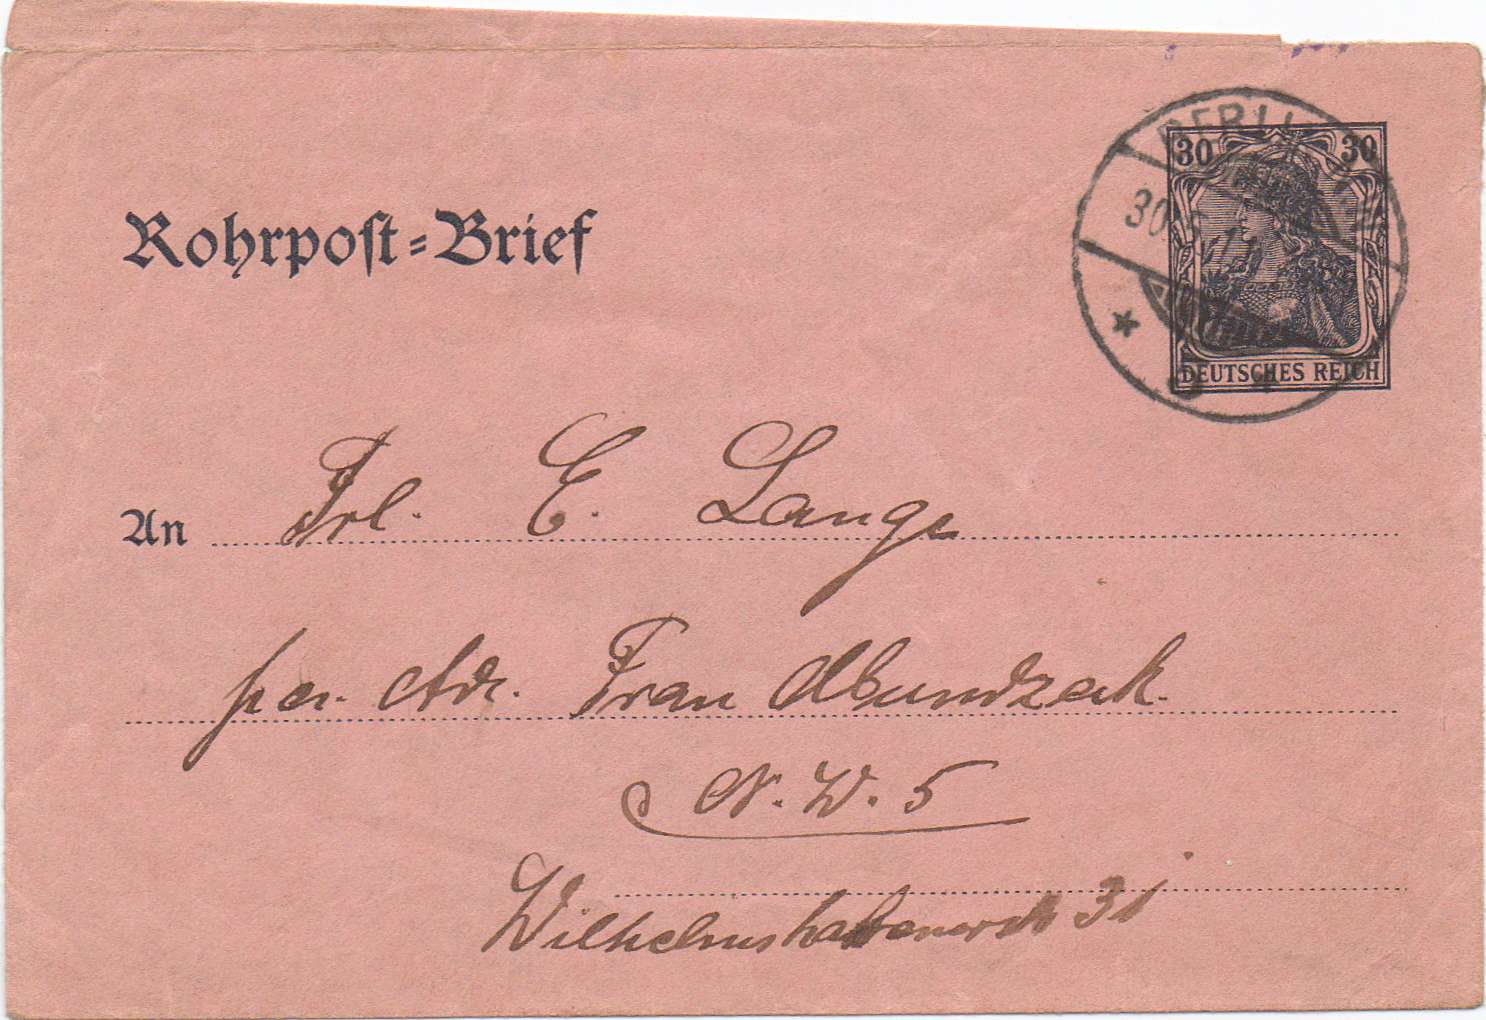 BERLIN
30 30
30.6.11
DEUTSCHES REICH
Rohrpoſt-Brief
An Frl. E. Lange
per Adr. Frau
N. W. 5
Wilhelmshavenerstr 31